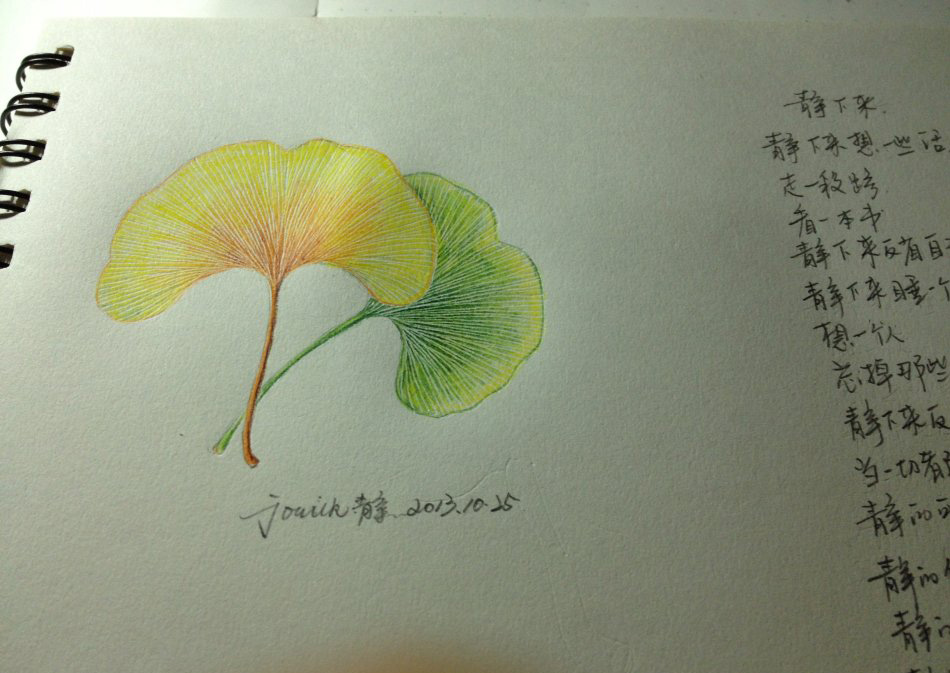 静 2013.10.25
静下来.
静下来想一些话
走一段路
看一本书
静下来反省自
静下来睡一个
想一个人
忘掉那些
静下来反
当一切都
静的可
静的
静的